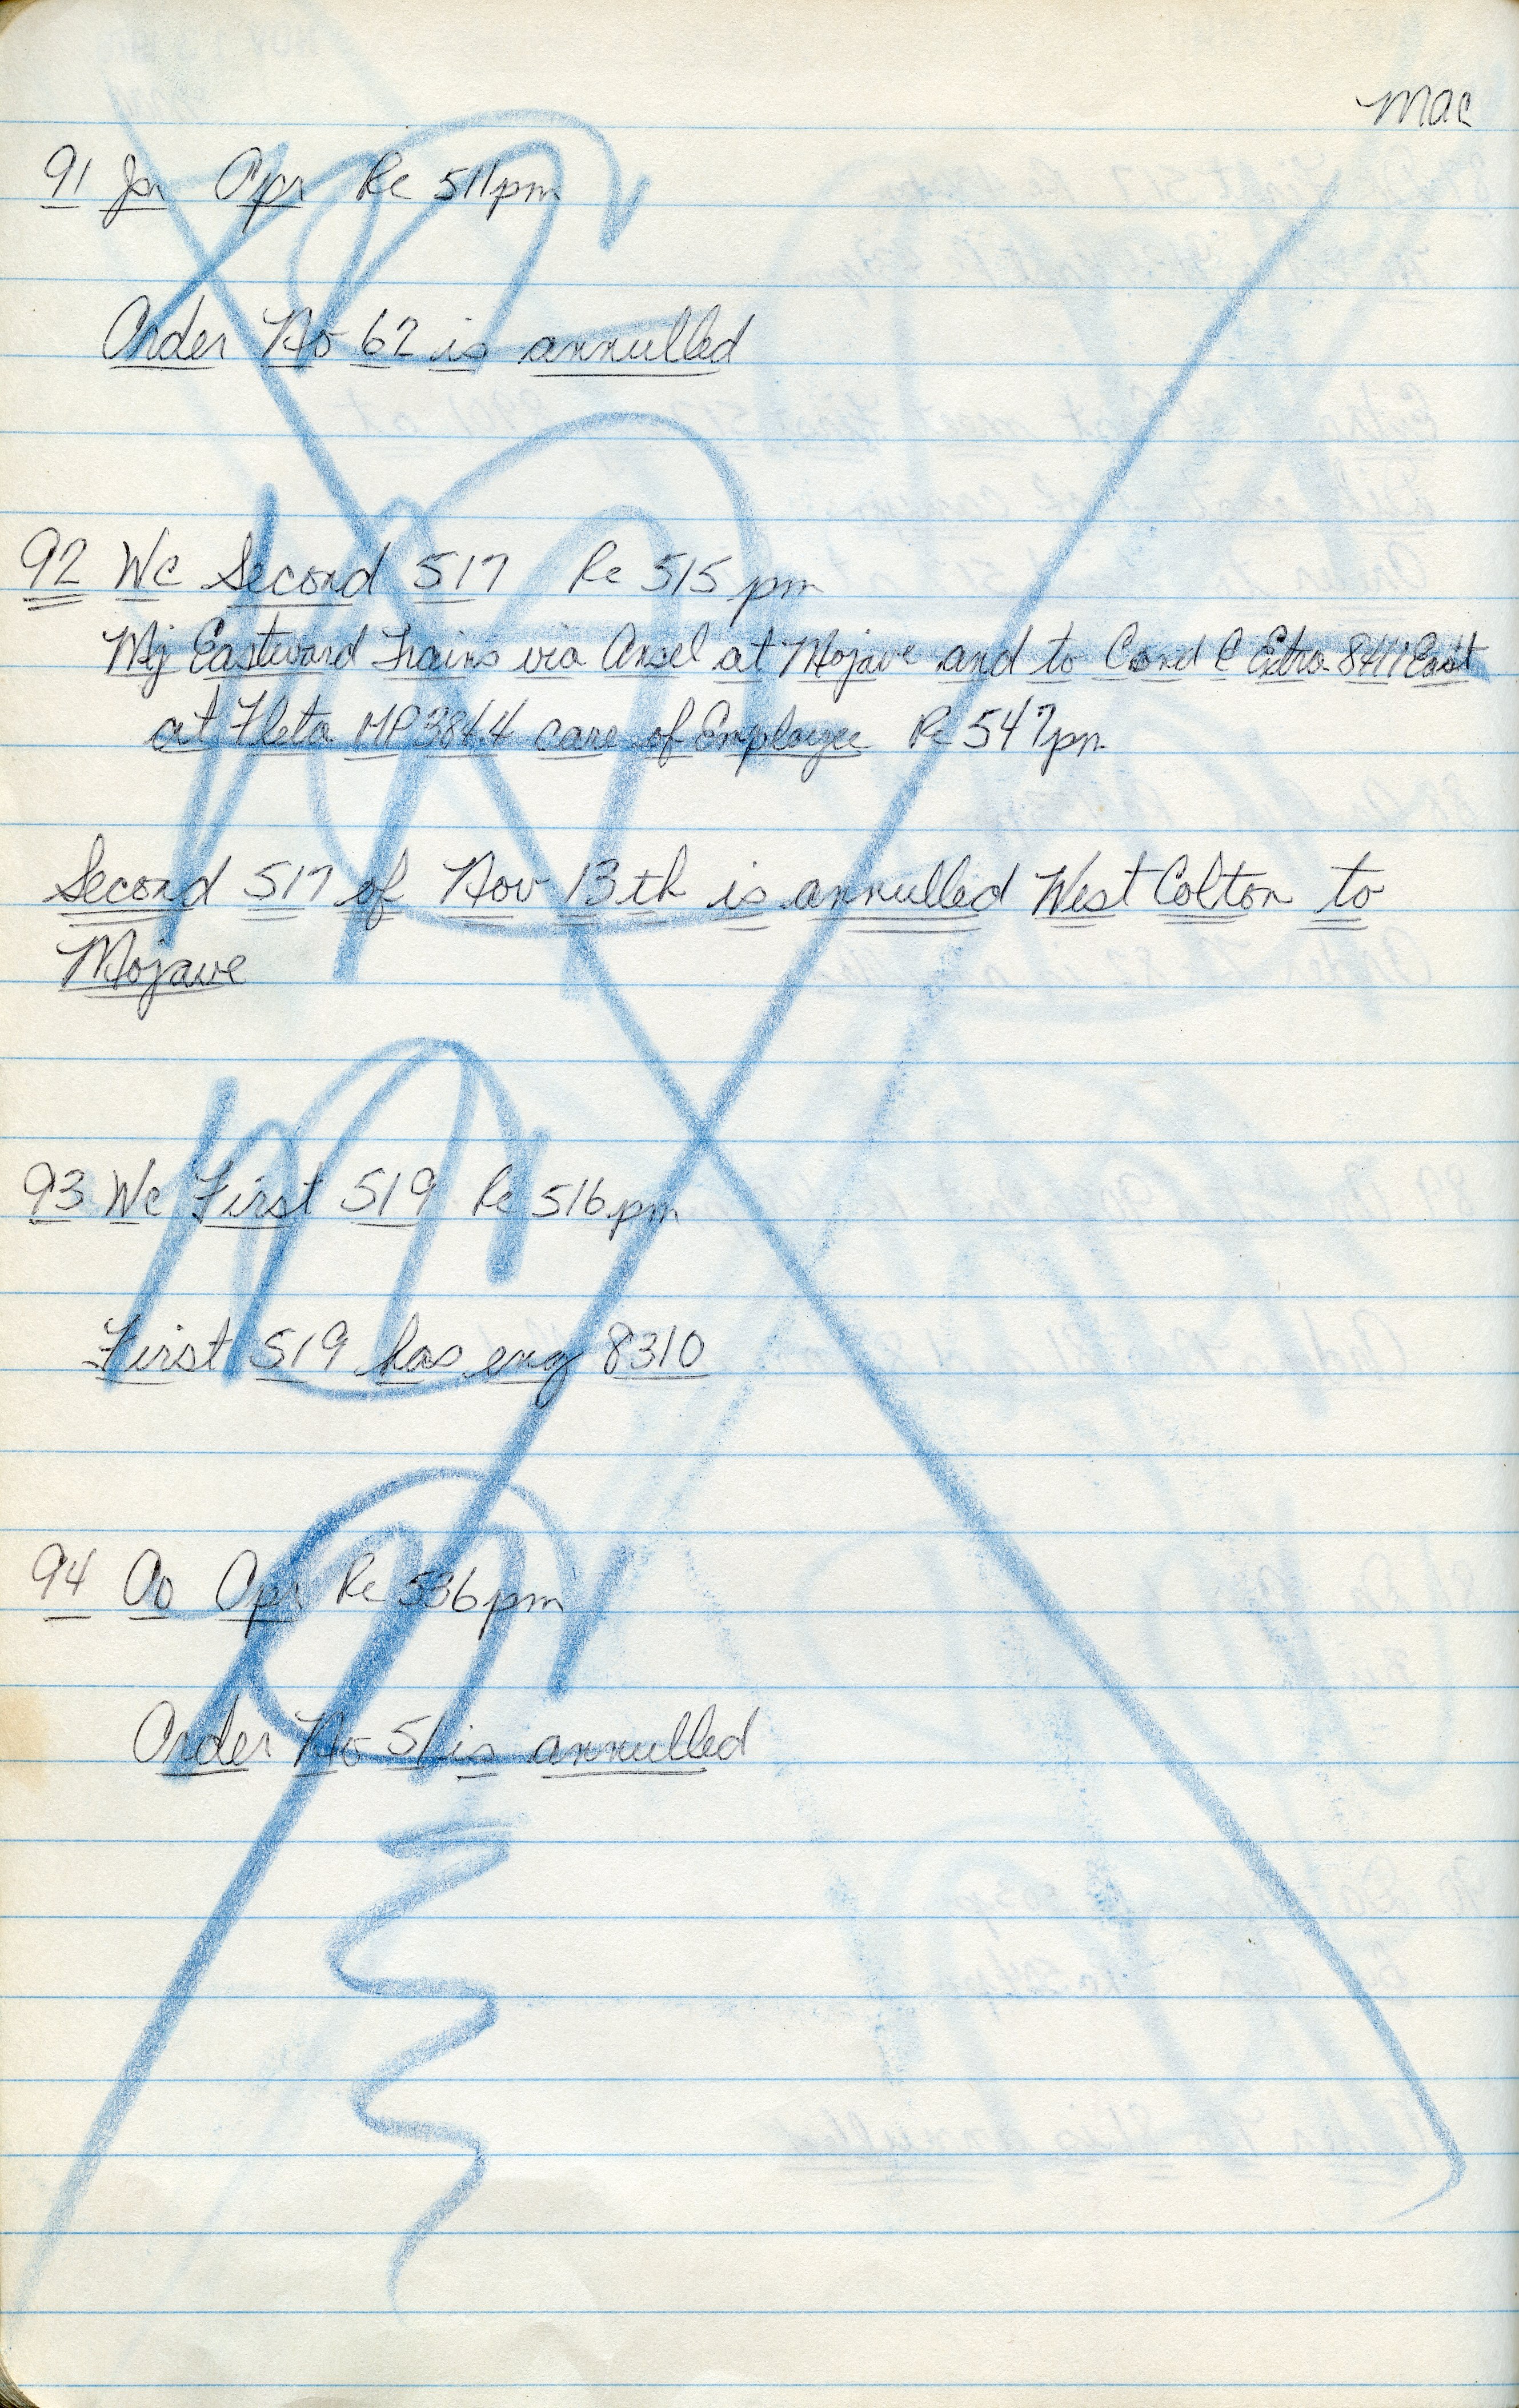 mac
91 Jn Opr Rc 511pm
Order No 62 is annulled
92 Wc Second 517 Rc 515 pm
Mj Eastward Trains via Ansel at Mojave and to Cond C Extra 8411 East
at Fleta MP 384.4 care of Employee Rc 547pm
Second 517 of Nov 13th is annulled West Colton to
Mojave
93 Wc First 519 Rc 516pm
First 519 has eng 8310
94 Oo Opr Rc 536pm
Order No 51 is annulled